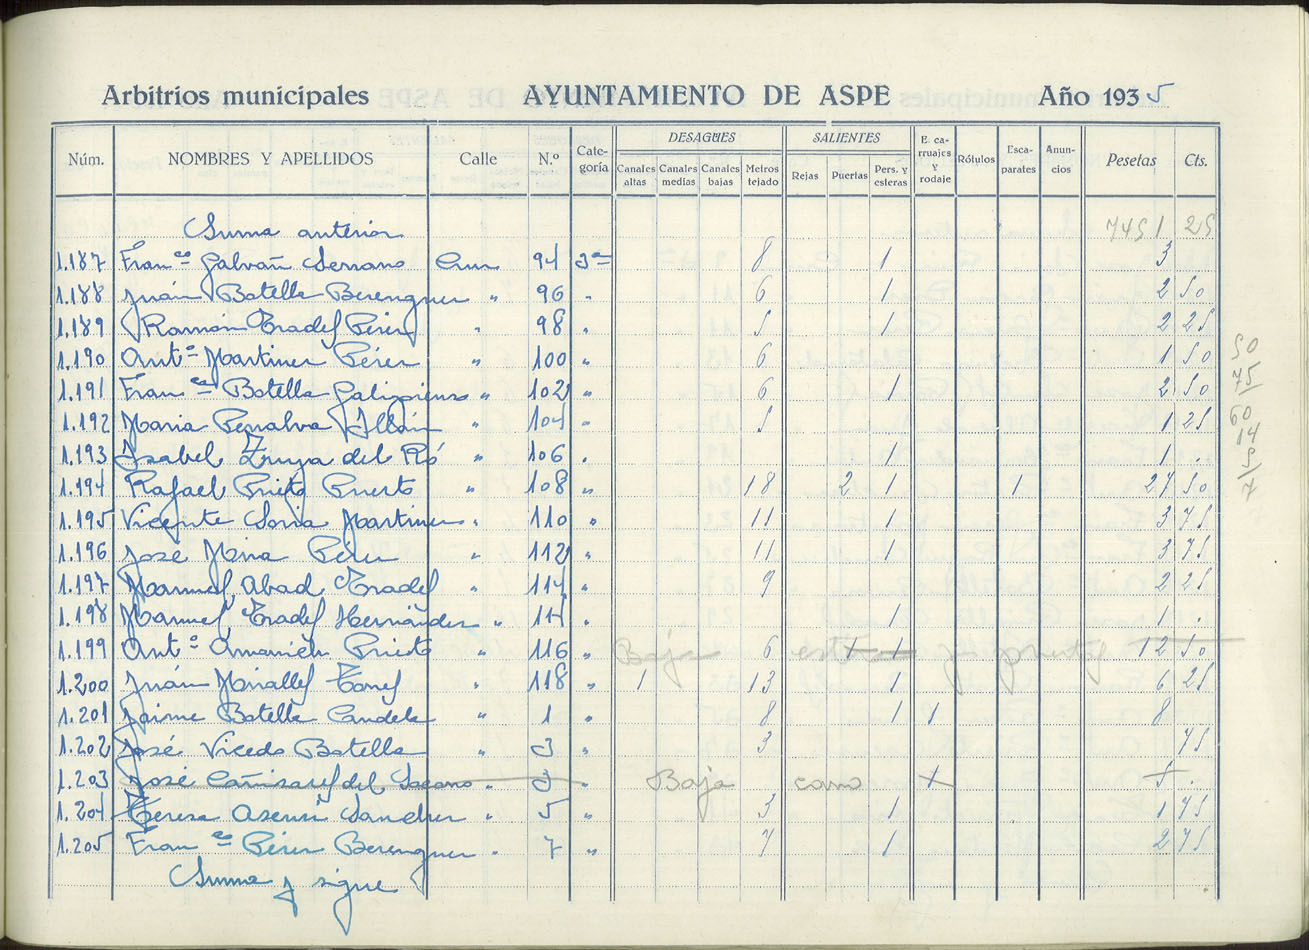 Arbitrios municipales AYUNTAMIENTO DE ASPE Año 1935
Núm. NOMBRES Y APELLIDOS Calle N.º Cate-goría DESAGÜES SALIENTES E. ca-rruajes y rodaje Rótulos Esca-parates Anun-cios Pesetas Cts.
Canales altas Canales medias Canales bajas Metros tejado Rejas Puertas Pers. y esteras
Suma anterior 7451 25
1.187 Franco Galvañ Serrano Cruz 94 3ª 8 1 3
1.188 Juán Botella Berenguer " 96 " 6 1 2 50
1.189 Ramón Pradel Pérez " 98 " 5 1 2 25
1.190 Antº Martinez Pérez " 100 " 6 1 50
1.191 Franca Botella Galipienso " 102 " 6 1 2 50
1.192 Maria Penalva Illán " 104 " 5 1 25
1.193 Isabel del " 106 " 1 1
1.194 Rafael Prieto Puerto " 108 " 18 2 1 1 27 50
1.195 Vicente Soria Martinez " 110 " 11 1 3 75
1.196 José Mira Pérez " 112 " 11 1 3 75
1.197 Manuel Abad Pradel " 114 " 9 2 25
1.198 Manuel Pradel Hernández " 114 " 1 1 .
1.199 Antº Amanién Prieto " 116 " Baja 6 1 1 12 50
1.200 Juán Mirallel " 118 " 1 13 1 6 25
1.201 Jaime Botella Candela " 1 " 8 1 1 8
1.202 José Vicedo Botella " 3 " 3 75
1.203 José Cañizarel del " 3 " Baja carro 5 .
1.204 Teresa Asensi Sanchez " 5 " 3 1 1 75
1.205 Franco Pérez Berenguer " 7 " 7 1 2 75
Suma y sigue
50
75
60
14
9
7